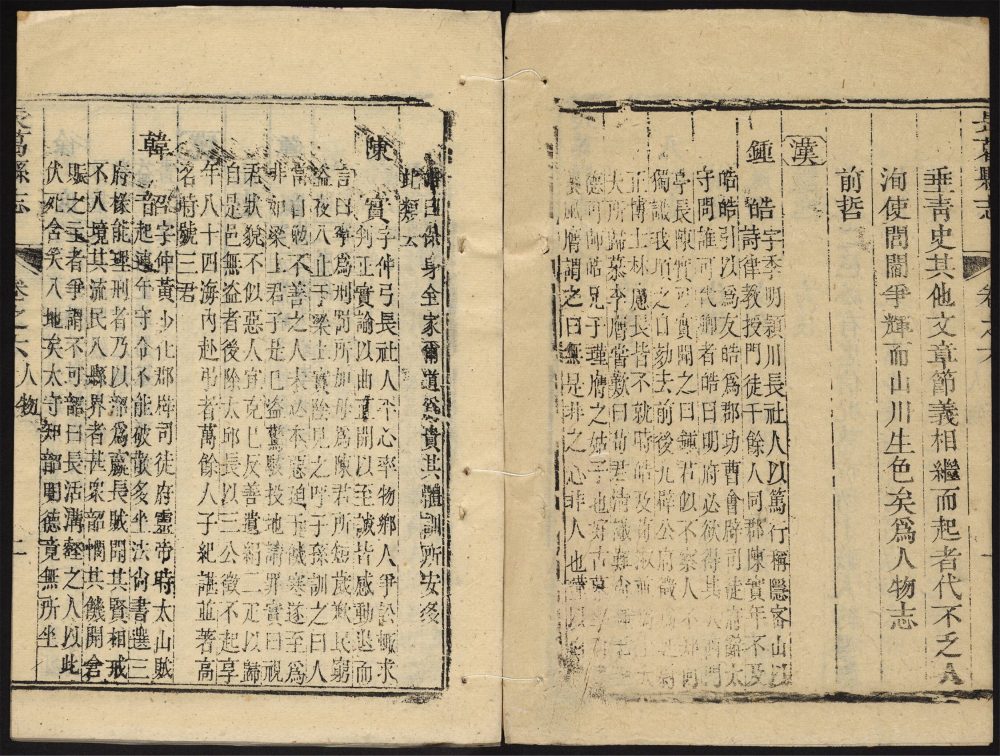 長葛縣志
卷之六
一
垂青史其他文章節義相繼而起者代不乏人
洵使閭閻爭輝而山川生色矣爲人物志
前哲
漢
鍾
皓字季明潁川長社人以篤行稱隱密山以
詩律教授門徒千餘人同郡陳寔年不及
皓皓引以爲友皓爲郡功曹會辟司徒府辭太
守問誰可代卿者皓曰明府必欲得其人西門
亭長陳寔可寔聞之曰鍾君似不察人不知何
獨識我頃之自劾去前後九辟公府徵
正博士林慮長皆不就時皓及荀淑
大所歸慕李膺嘗歎曰荀君清識難尚
德可師皓兄子瑾膺之姑子也好古慕
膺謂之曰無是非之心非人也瑾
保身全家爾道爲貴其體訓所安多
此類云
陳
寔字仲弓長社人平心率物鄉人爭訟輒求
判正寔諭以曲直開以至誠皆感動退而
言曰寧爲刑罰所加毋爲陳君所短歲歉民窮
盜夜入止于梁上寔陰見之呼子孫訓之曰人
當自勉不善之人未必本惡迫于饑寒遂至爲
非如梁上君子是已盜驚駭投地請罪寔曰視
君狀貌不似惡人宜克己反善遺絹二疋以歸
自是邑無盜者後除太邱長以三公徵不起享
年八十四海內赴弔者萬餘人子紀諶並著高
名時號三君
韓
韶字仲黃少仕郡辟司徒府靈帝時太山賊
起連年守令不能破散多坐法尚書選三
府掾能理刑者乃以韶爲嬴長賊聞其賢相戒
不入境其流民入縣界者甚衆韶憫其饑開倉
賑之主者爭謂不可韶曰長活溝壑之人以此
伏死含笑入地矣太守知韶聞德竟無所坐
長葛縣志
卷之六人物
二